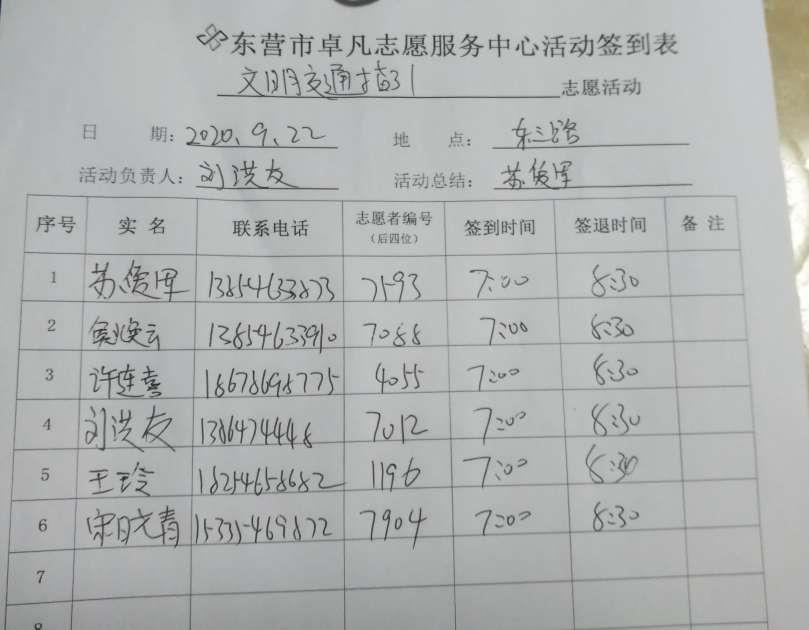 东营市卓凡志愿服务中心活动签到表
文明交通指引 志愿活动
日 期: 2020.9.22 地 点: 东三路
活动负责人: 刘洪友 活动总结: 苏俊军
序号 实名 联系电话 志愿者编号 签到时间 签退时间 备注
(后四位)
1 苏俊军 13854633873 7593 7:00 8:30
2 13854633910 7088 7:00 8:30
3 许连喜 18678698775 4055 7:00 8:30
4 刘洪友 1386474448 7012 7:00 8:30
5 王玲 18254658682 1196 7:00 8:30
6 15335469822 7904 7:00 8:30
7
8